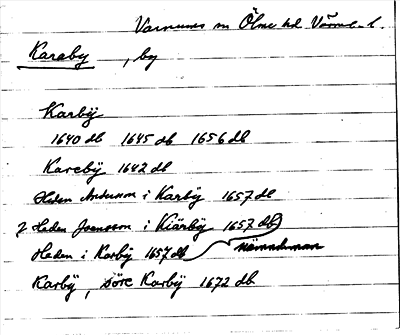 Varnums sn Ölme hd Värml. l.
Karaby, by
Karbÿ
1640 db 1645 db 1656 db
Karebÿ 1642 db
Heden Andersson i Karbÿ 1657 db
Heden Joensson i Kiärbÿ 1657 db
Heden i Karbÿ 1657 db nämndeman
Karbÿ, Söre Karbÿ 1672 db